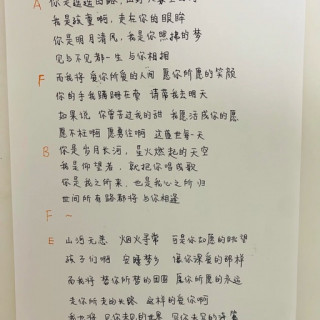 A 你是遥遥的路 山野大雾里的灯
我是孩童啊 走在你的眼眸
你是明月清风 我是你照拂的梦
见与不见都一生 与你相拥
F 而我将 爱你所爱的人间 愿你所愿的笑颜
你的手我蹒跚在牵 请带我去明天
如果说 你曾苦过我的甜 我愿活成你的愿
愿不枉啊 愿勇往啊 这盛世每一天
B 你是岁月长河 星火燃起的天空
我是仰望者 就把你唱成歌
你是我之所来 也是我心之所归
世间所有路都将与你相逢
F ~
E 山河无恙 烟火寻常 可是你如愿的眺望
孩子们啊 安睡梦乡 像你深爱的那样
而我将 梦你所梦的团圆 愿你所愿的永远
走你所走的长路 这样的爱你啊
我也将 见你未见的世界 写你未写的诗篇